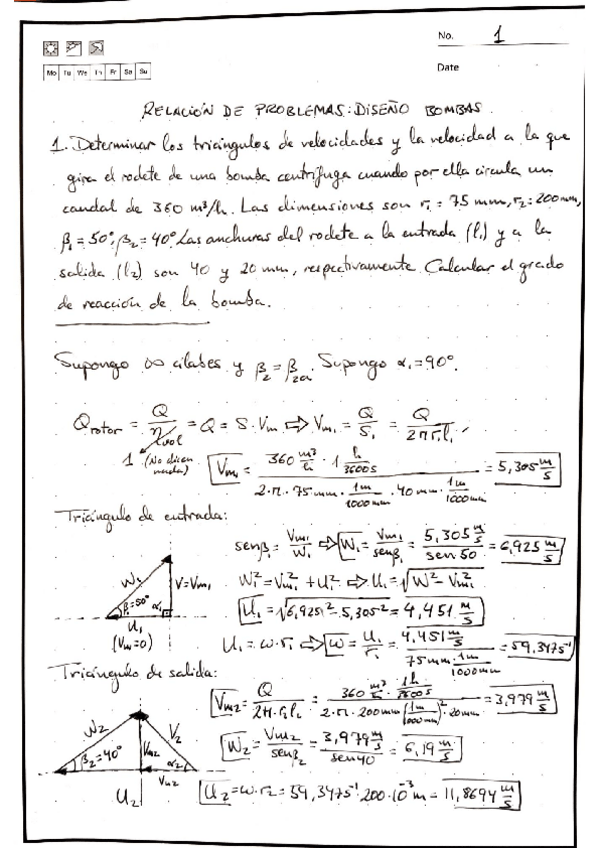 No. 1
Mo Tu We Th Fr Sa Su
Date
RELACIÓN DE PROBLEMAS: DISEÑO BOMBAS
1. Determinar los triángulos de velocidades y la velocidad a la que
gira el rodete de una bomba centrífuga cuando por ella circula un
caudal de 360 m³/h. Las dimensiones son r₁ = 75 mm, r₂: 200mm,
β₁ = 50°, β₂ = 40°. Las anchuras del rodete a la entrada (l₁) y a la
salida (l₂) son 40 y 20 mm, respectivamente. Calcular el grado
de reacción de la bomba.
Supongo ∞ álabes y β₂ = β₂∞. Supongo α₁ = 90°.
Q rotor = Q/η vol = Q = S · Vm ⇒ Vm₁ = Q/S₁ = Q/2πr₁l₁
1 (No dicen nada)
Vm₁ = 360 m³/h · 1 h/3600s / 2·π·75mm · 1m/1000mm · 40mm · 1m/1000mm = 5,305 m/s
Triángulo de entrada:
senβ₁ = Vm₁/W₁ ⇒ W₁ = Vm₁/senβ₁ = 5,305 m/s / sen50 = 6,925 m/s
W₁ β₁=50° α₁ V=Vm₁
W₁² = Vm₁² + U₁² ⇒ U₁ = √W² - Vm₁²
U₁
U₁ = √6,925² - 5,305² = 4,451 m/s
(Vu=0)
U₁ = ω·r₁ ⇒ ω = U₁/r₁ = 4,451 m/s / 75mm · 1m/1000mm = 59,347s⁻¹
Triángulo de salida:
Vm₂ = Q/2π·r₂l₂ = 360 m³/h · 1h/3600s / 2·π·200mm (1m/1000mm)² · 20mm = 3,979 m/s
W₂ V₂ β₂=40° Vm₂ α₂ Vu₂
W₂ = Vm₂/senβ₂ = 3,979 m/s / sen40 = 6,19 m/s
U₂
U₂ = ω·r₂ = 59,347s⁻¹ · 200·10⁻³ m = 11,8694 m/s